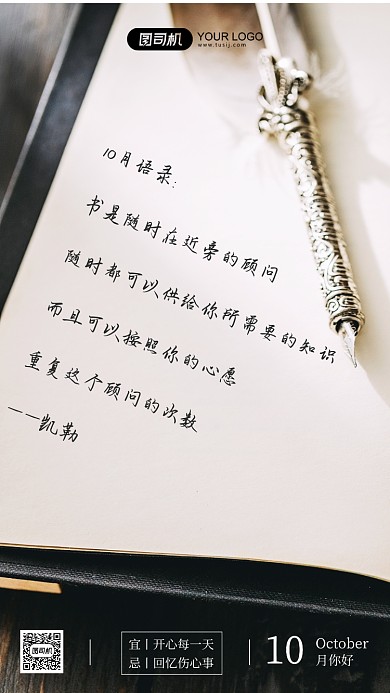 图司机
YOUR LOGO
www.tusij.com
10月语录:
书是随时在近旁的顾问
随时都可以供给你所需要的知识
而且可以按照你的心愿
重复这个顾问的次数
——凯勒
图司机
宜 | 开心每一天
忌 | 回忆伤心事
10
October
月你好